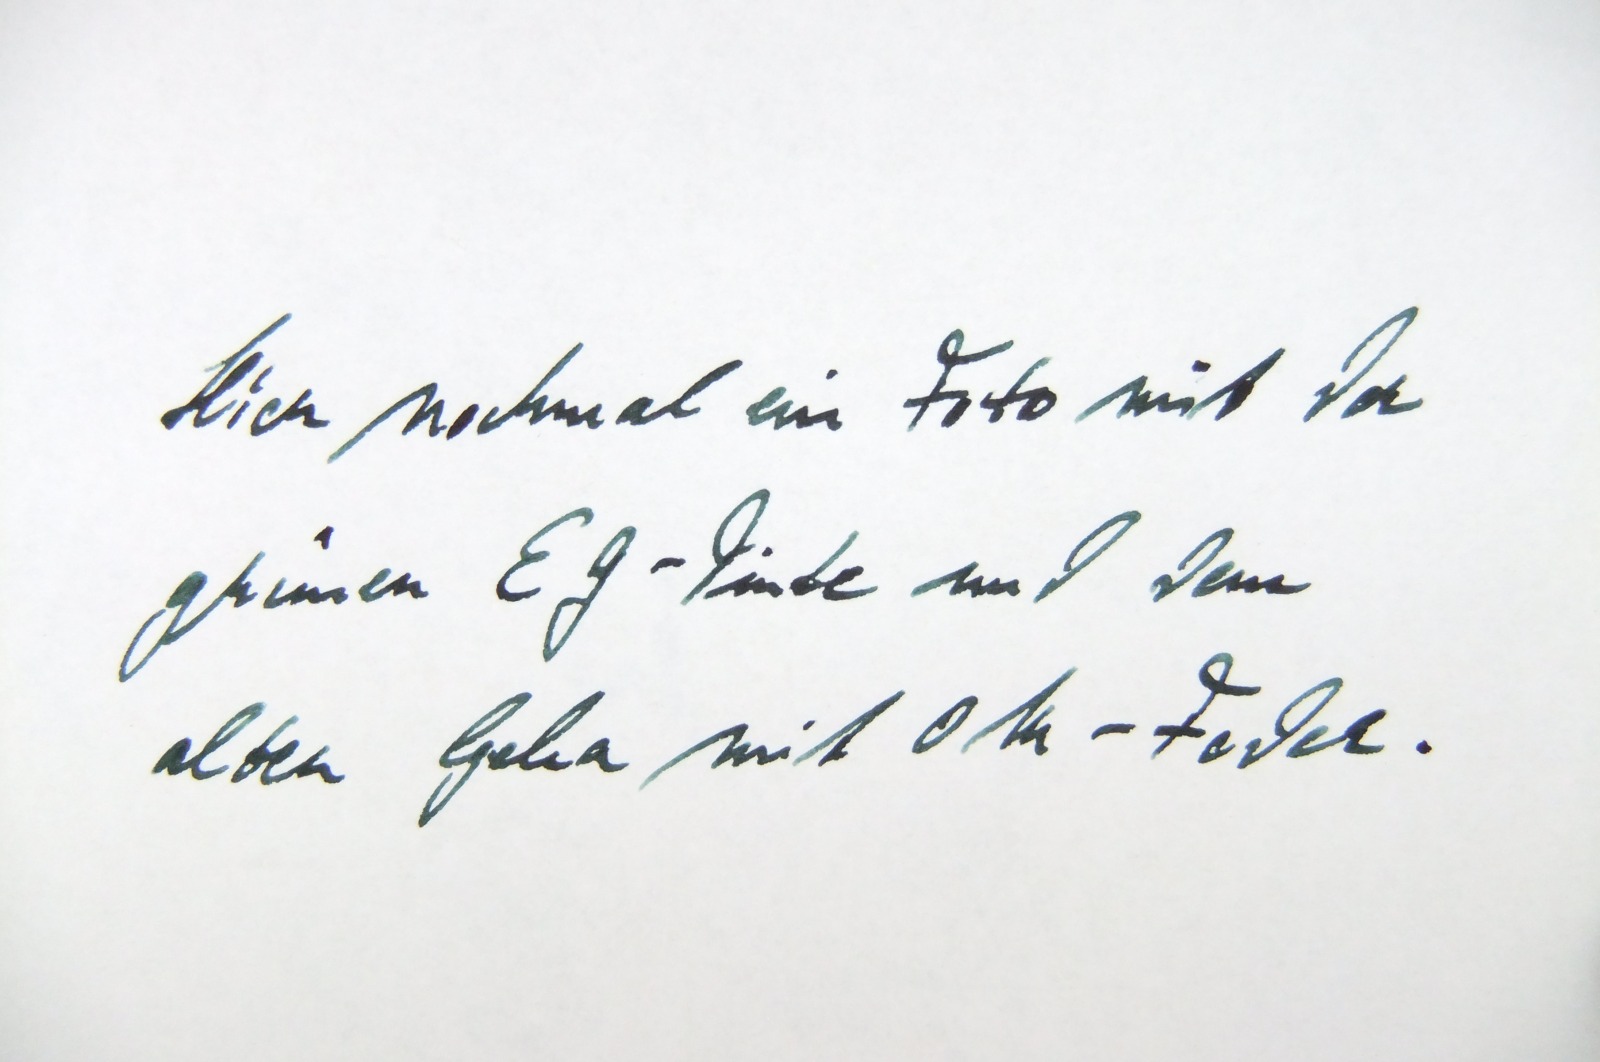 Hier nochmal ein Foto mit der
grünen EG-Tinte und dem
alten Geha mit OM-Feder.